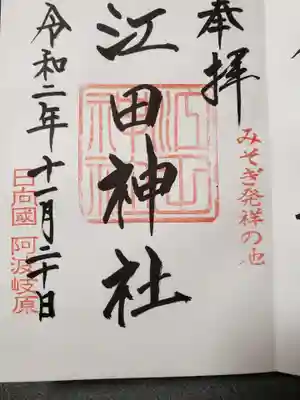 奉拝
みそぎ発祥の地
江田神社
令和二年十一月二十日
日向國 阿波岐原